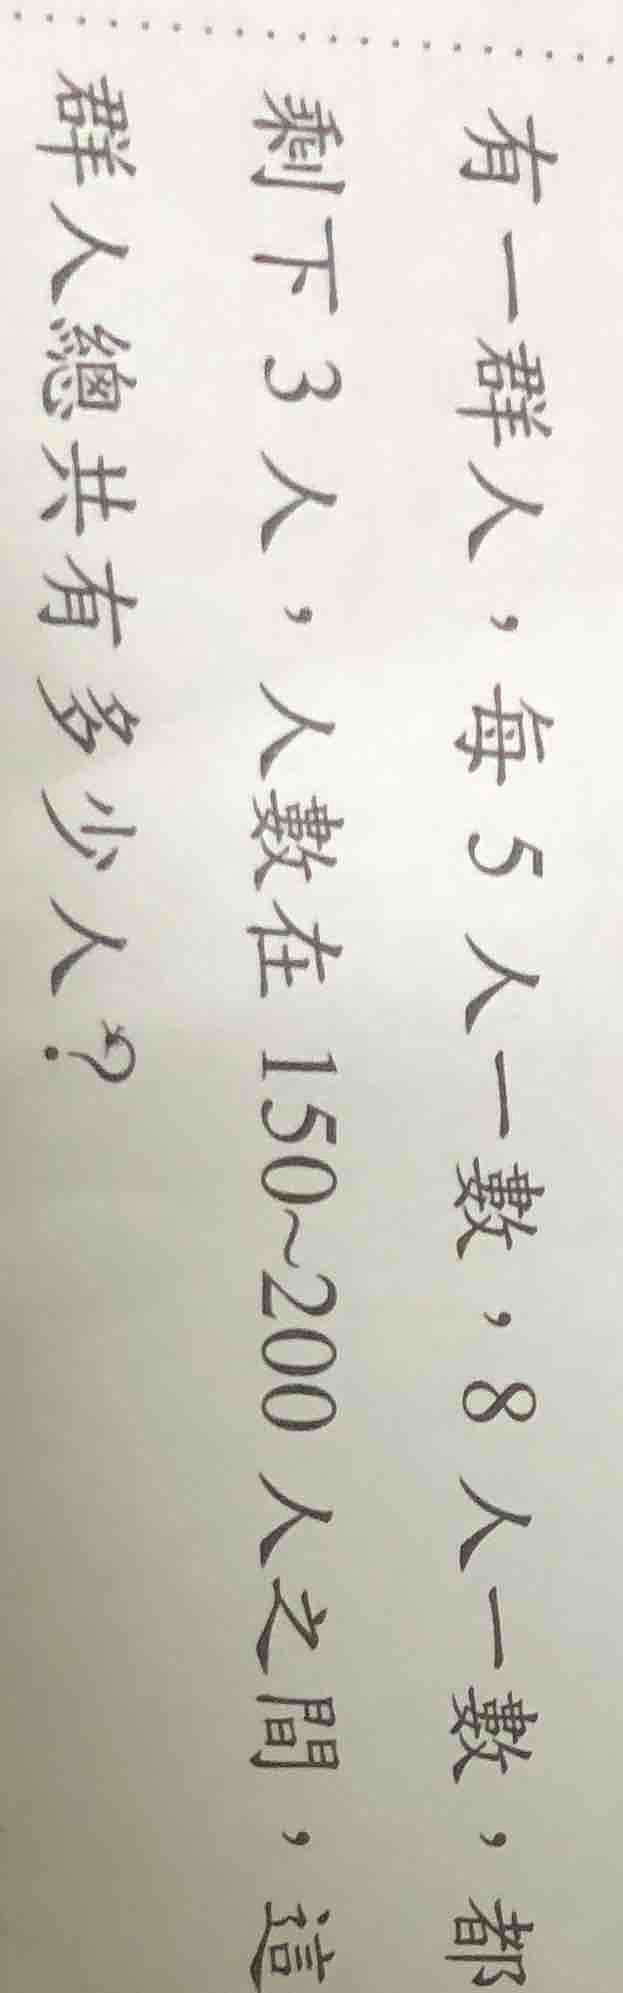 有一群人，每 5 人一數，8 人一數，都
剩下 3 人，人數在 150~200 人之間，這
群人總共有多少人？